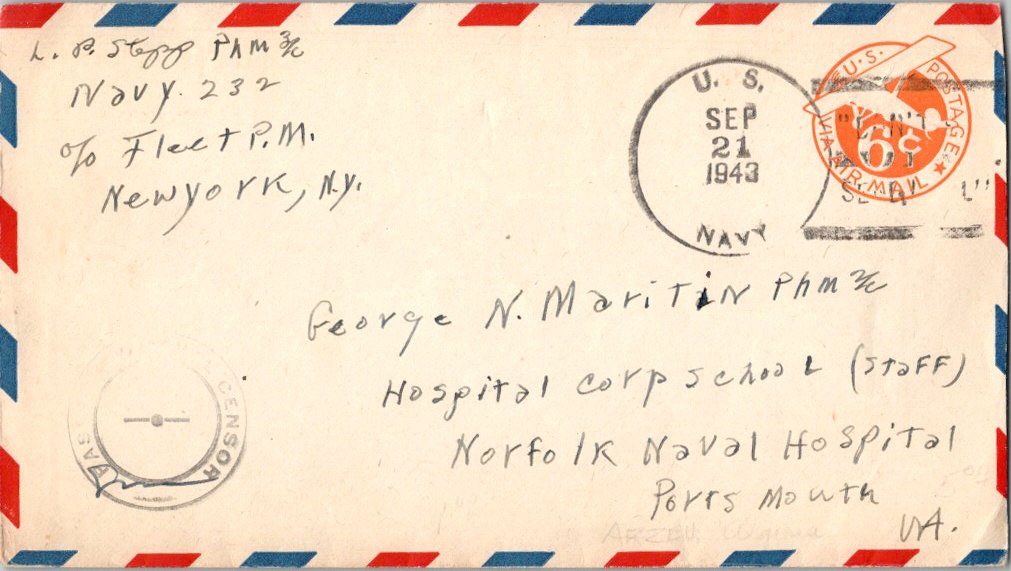 L. P. Stepp PhM 3/c
Navy. 232
c/o Fleet P.M.
New York, N.Y.
U. S.
SEP
21
1943
NAVY
U.S. POSTAGE
6¢
VIA AIR MAIL
George N. Maritin PhM 2/c
Hospital Corp School (Staff)
Norfolk Naval Hospital
Ports Mouth
VA.
CENSOR